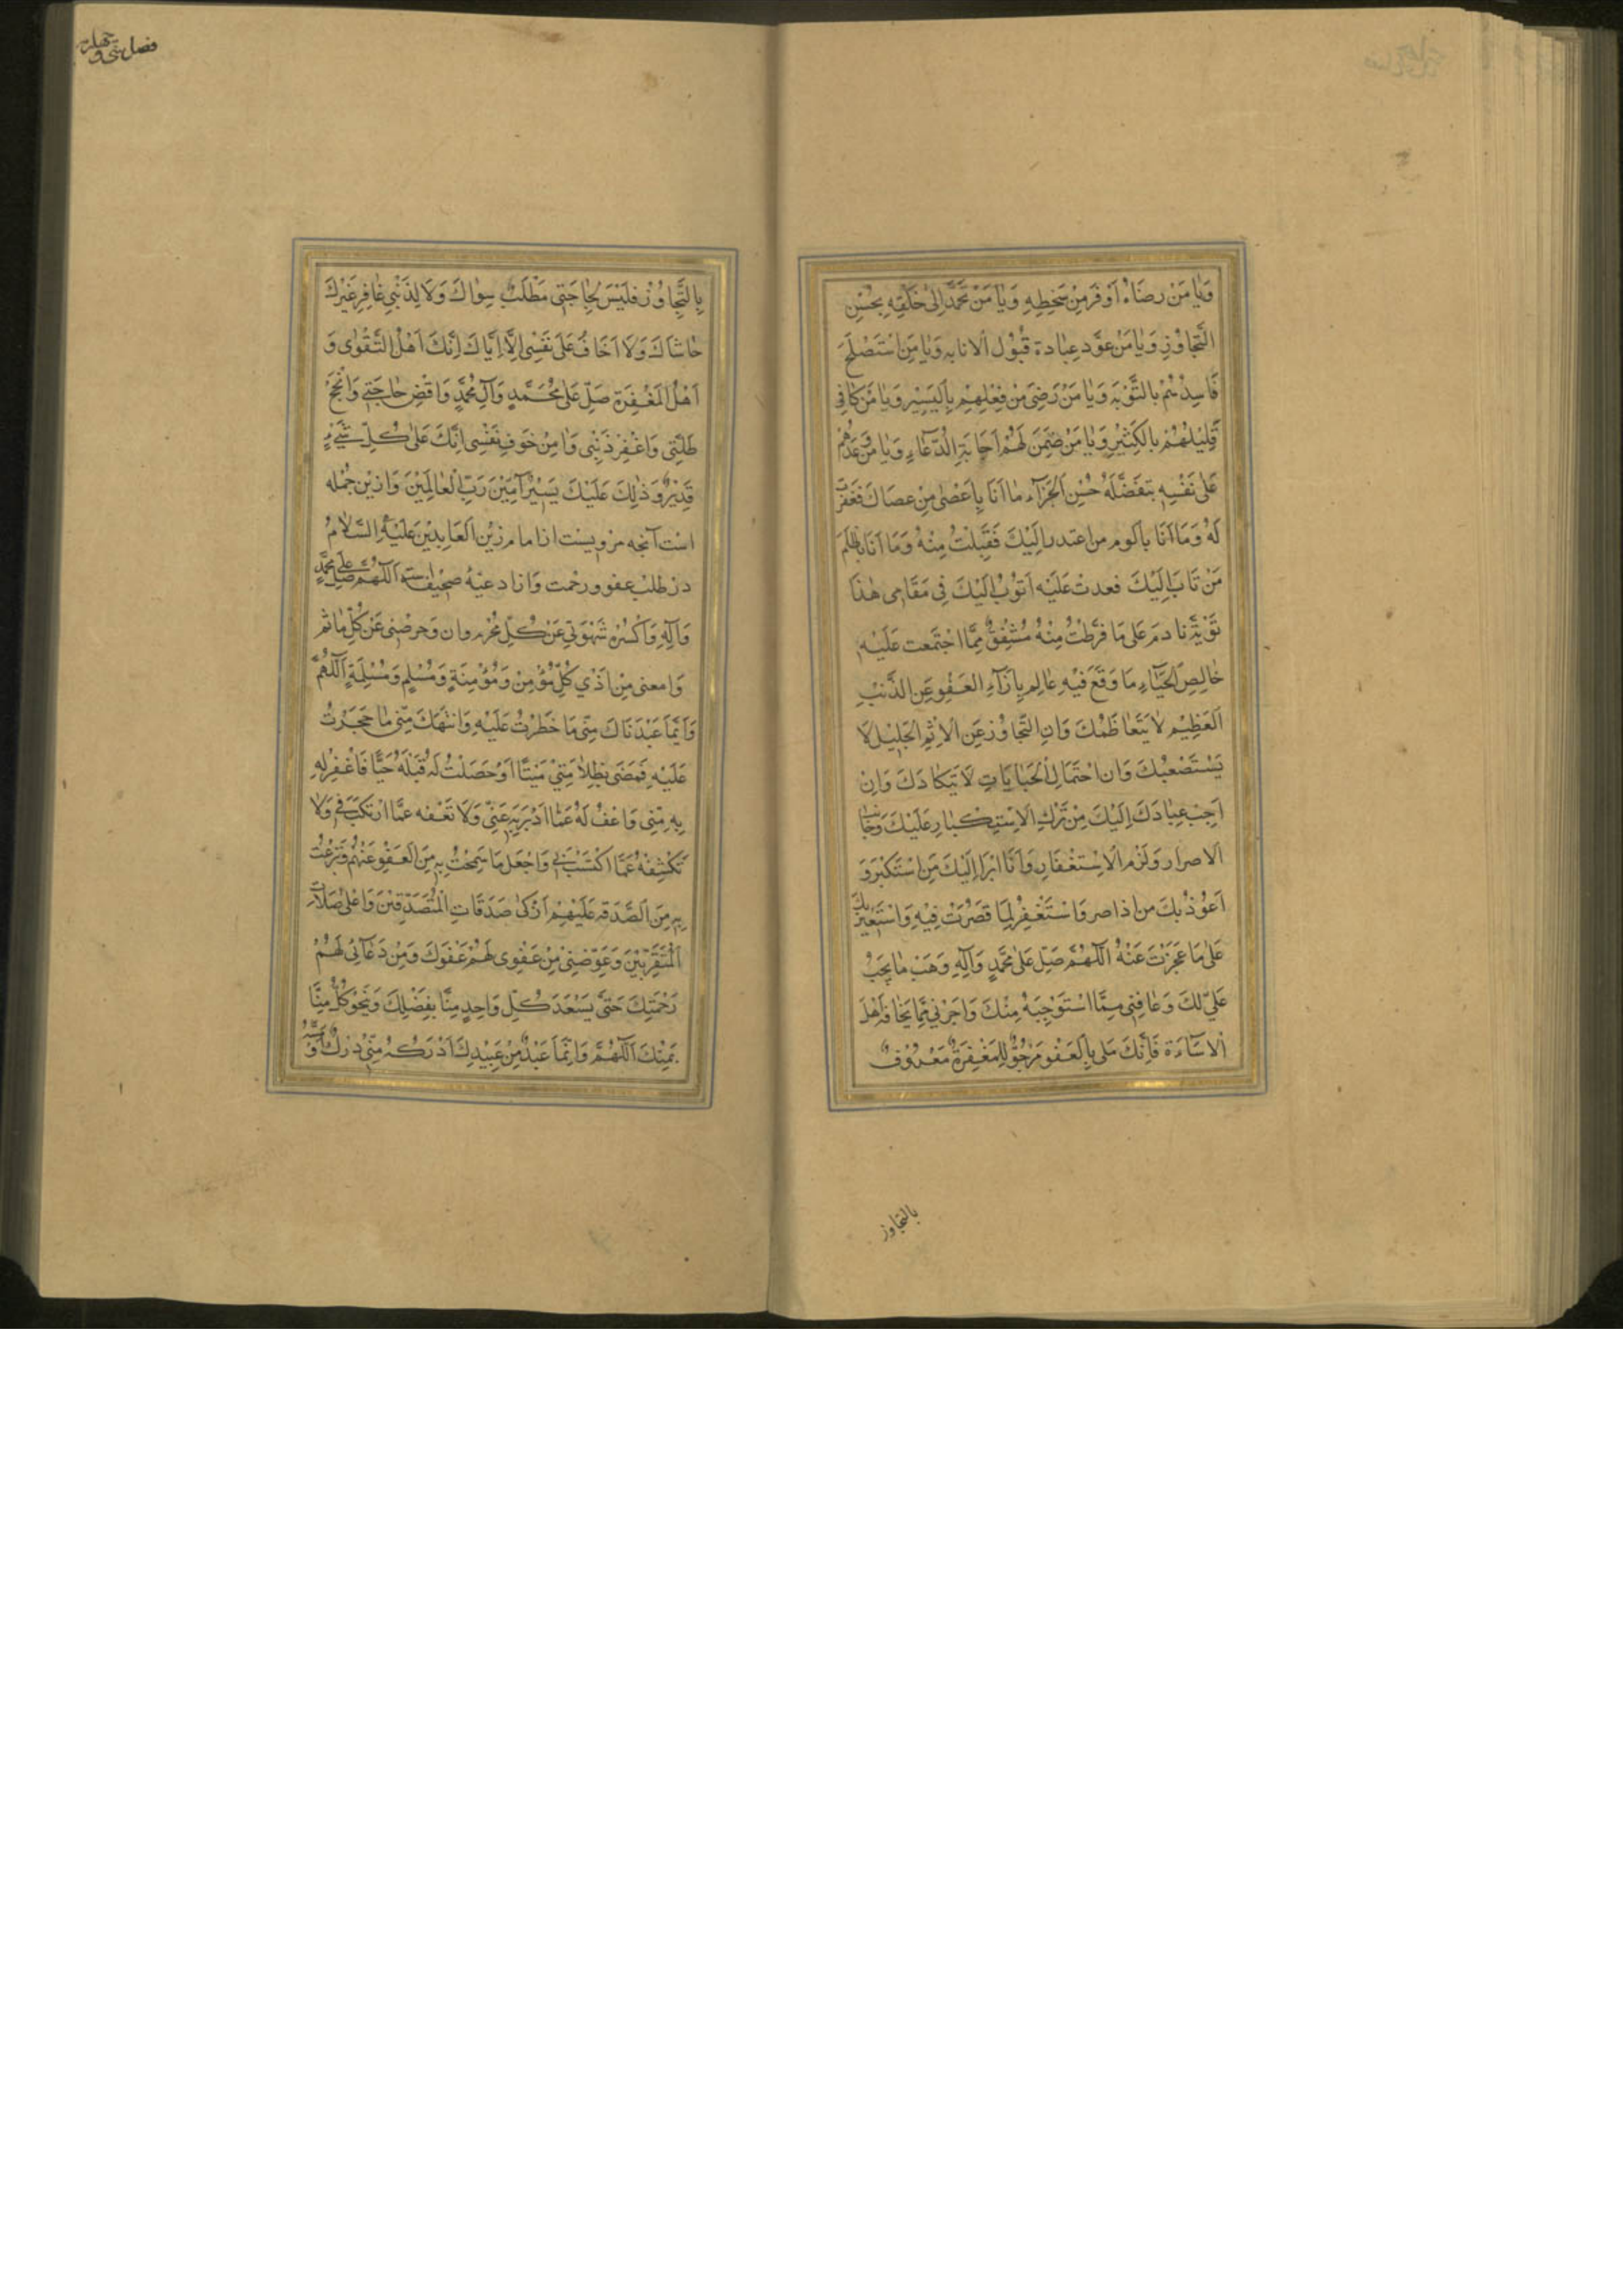 وَيَا مَنْ رِضَاهُ اَوْفَرُ مِنْ سَخَطِهِ وَيَا مَنْ تَحَمَّدَ اِلٰى خَلْقِهِ بِحُسْنِ
التَّجَاوُزِ وَيَا مَنْ عَوَّدَ عِبَادَهُ قَبُوْلَ الانابه وَيَا مَنِ اسْتَصْلَحَ
فَاسِدَهُمْ بِالتَّوْبَةِ وَيَا مَنْ رَضِىَ مِنْ فِعْلِهِمْ بِالْيَسِيْرِ وَيَا مَنْ كَافٰى
قَلِيْلَهُمْ بِالْكَثِيْرِ وَيَا مَنْ ضَمِنَ لَهُمْ اِجَابَةَ الدُّعَاءِ وَيَا مَنْ وَعَدَهُمْ
عَلٰى نَفْسِهِ بِتَفَضُّلِهِ حُسْنَ الْجَزَآءِ مَا اَنَا بِاَعْصٰى مَنْ عَصَاكَ فَغَفَرْتَ
لَهُ وَمَا اَنَا بِاَلْوَمِ مَنِ اعتذر اِلَيْكَ فَقَبِلْتَ مِنْهُ وَمَا اَنَا بِاَظْلَمِ
مَنْ تَابَ اِلَيْكَ فعدت عَلَيْهِ اَتُوْبُ اِلَيْكَ فِى مَقَامِى هٰذَا
تَوْبَةَ نَادِمٍ عَلٰى مَا فَرَطَ مِنْهُ مُشْفِقٌ مِمَّا اجْتَمَعت عَلَيْهِ
خَالِصِ الْحَيَآءِ مَا وَقَعَ فِيْهِ عَالِمٍ بِاَنَّ الْعَفْوَ عَنِ الذَّنْبِ
الْعَظِيْمِ لَا يَتَعَاظَمُكَ وَاَنَّ التَّجَاوُزَ عَنِ الْاِثْمِ الْجَلِيْلِ لَا
يَسْتَصْعِبُكَ وَاَنَّ احْتِمَالَ الْجَنَايَاتِ لَا يَتَكَادُكَ وَاَنَّ
اَحَبَّ عِبَادِكَ اِلَيْكَ مَنْ تَرَكَ الْاِسْتِكْبَارَ عَلَيْكَ وَجَانَبَ
الاصرار وَلَزِمَ الْاِسْتِغْفَارَ وَاَنَا اَبْرَأُ اِلَيْكَ مِنْ اَنْ اسْتَكْبَرَ وَ
اَعُوْذُ بِكَ مِنْ اَنْ اصر وَاسْتَغْفِرُ لِمَا قَصَّرْتُ فِيْهِ وَاسْتَعِيْنُ بِكَ
عَلٰى مَا عَجَزْتُ عَنْهُ اَللّٰهُمَّ صَلِّ عَلٰى مُحَمَّدٍ وَآلِهِ وَهَبْ مَا يَجِبُ
عَلَىَّ لَكَ وَعَافِنِى مِمَّا اسْتَوْجِبُهُ مِنْكَ وَاَجِرْنِى مِمَّا يَخَافُهُ اَهْلُ
الْاسَاءَةِ فَاِنَّكَ مَلِىٌّ بِالْعَفْوِ مَرْجُوٌّ لِلْمَغْفِرَةِ مَعْرُوْفٌ
بالتجاوز
فصل سى و چهار
بِالتَّجَاوُزِ فَلَيْسَ لِحَاجَتِى مَطْلَبٌ سِوَاكَ وَلَا لِذَنْبِى غَافِرٌ غَيْرُكَ
حَاشَاكَ وَلَا اَخَافُ عَلٰى نَفْسِى اِلَّا اِيَّاكَ اِنَّكَ اَهْلُ التَّقْوٰى وَ
اَهْلُ الْمَغْفِرَةِ صَلِّ عَلٰى مُحَمَّدٍ وَآلِ مُحَمَّدٍ وَاقْضِ حَاجَتِى وَاَنْجِحْ
طَلِبَتِى وَاغْفِرْ ذَنْبِى وَاٰمِنْ خَوْفَ نَفْسِى اِنَّكَ عَلٰى كُلِّ شَىْءٍ
قَدِيْرٌ وَذٰلِكَ عَلَيْكَ يَسِيْرٌ آمِيْنَ رَبَّ الْعَالَمِيْنَ وَازين جُمله
است آنچه مرويست از امام زين الْعَابِدِيْنَ عَلَيْهِ السَّلَامُ
در طلب عفو و رحمت و از ادعيهٔ صحيفه است اَللّٰهُمَّ صَلِّ عَلٰى مُحَمَّدٍ
وَآلِهِ وَاكْسِرْ شَهْوَتِى عَنْ كُلِّ مَحْرَمٍ وازو حرصى عَنْ كُلِّ مَاثَمٍ
وَامنعنى مِنْ اَذٰى كُلِّ مُؤْمِنٍ وَمُؤْمِنَةٍ وَمُسْلِمٍ وَمُسْلِمَةٍ اَللّٰهُمَّ
وَاَيُّمَا عَبْدٍ نَالَ مِنِّى مَا حَظَرْتَ عَلَيْهِ وَانْتَهَكَ مِنِّى مَا حَجَرْتَ
عَلَيْهِ فَمَضٰى بِظُلَامَتِى مَيِّتًا اَوْ حَصَلَتْ لِى قِبَلَهُ حَيًّا فَاغْفِرْ لَهُ مَا اَلَمَّ
بِهِ مِنِّى وَاعْفُ لَهُ عَمَّا اَدْبَرَ بِهِ عَنِّى وَلَا تَقِفْهُ عَمَّا ارْتَكَبَ فِىَّ وَلَا
تَكْشِفْهُ عَمَّا اكْتَسَبَ بِى وَاجْعَلْ مَا سَمَحْتُ بِهِ مِنَ الْعَفْوِ عَنْهُمْ وَتَبَرَّعْتُ
بِهِ مِنَ الصَّدَقَةِ عَلَيْهِمْ اَزْكٰى صَدَقَاتِ الْمُتَصَدِّقِيْنَ وَاَعْلٰى صِلَاتِ
الْمُتَقَرِّبِيْنَ وَعَوِّضْنِى مِنْ عَفْوِى لَهُمْ عَفْوَكَ وَمِنْ دُعَآئِى لَهُمْ
رَحْمَتَكَ حَتّٰى يَسْعَدَ كُلُّ وَاحِدٍ مِنَّا بِفَضْلِكَ وَيَنْجُوَ كُلٌّ مِنَّا
بِمَنِّكَ اَللّٰهُمَّ وَاَيُّمَا عَبْدٍ مِنْ عَبِيْدِكَ اَدْرَكَهُ مِنِّى دَرَكٌ اَوْ مَسَّهُ